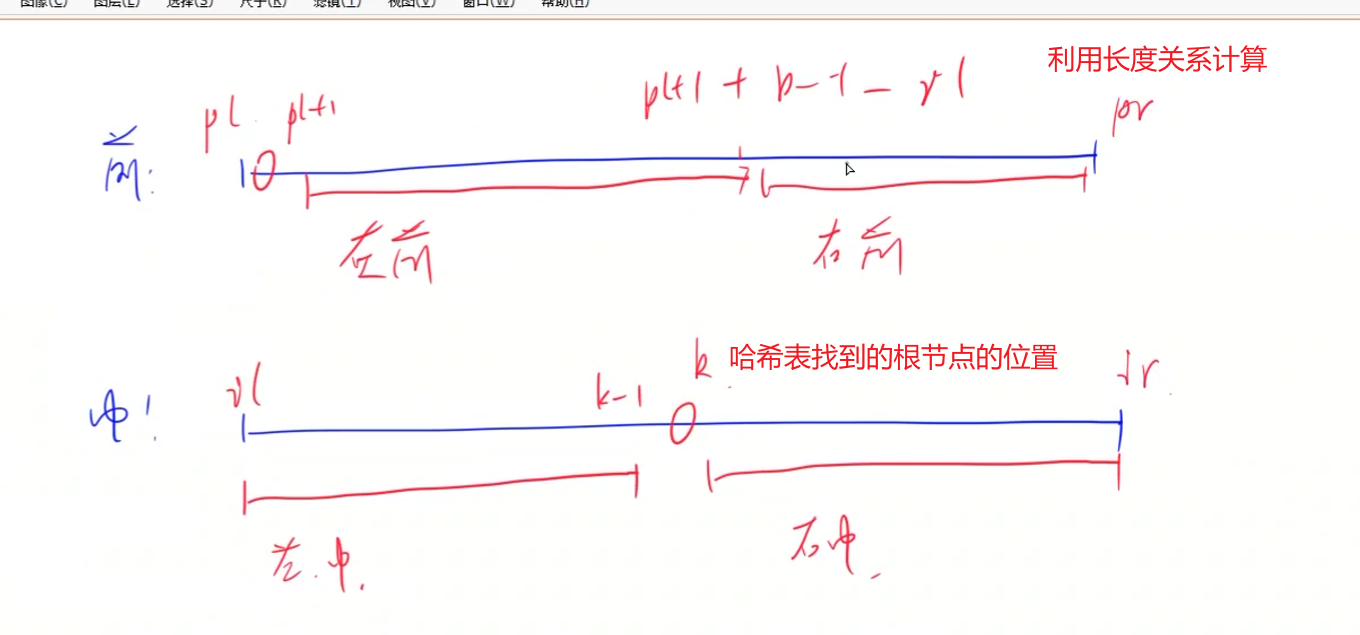 图像(C) 图层(L) 选择(S) 尺寸(R) 滤镜(T) 视图(V) 窗口(W) 帮助(H)
利用长度关系计算
pl pl+1 pl+1 + k-1 - il pr
前:
左前 右前
哈希表找到的根节点的位置
il k-1 k ir
中:
左中 右中